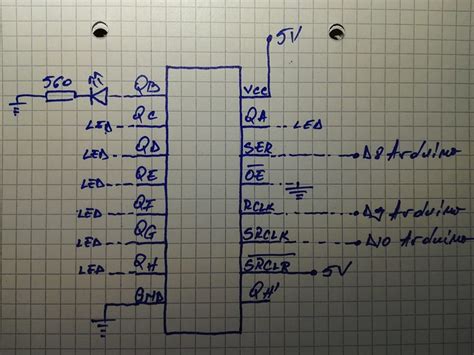 5V
560
QB VCC
LED QC QA LED
LED QD SER D8 Arduino
LED QE OE
LED QF RCLK D9 Arduino
LED QG SRCLK D10 Arduino
LED QH SRCLR 5V
GND QH'